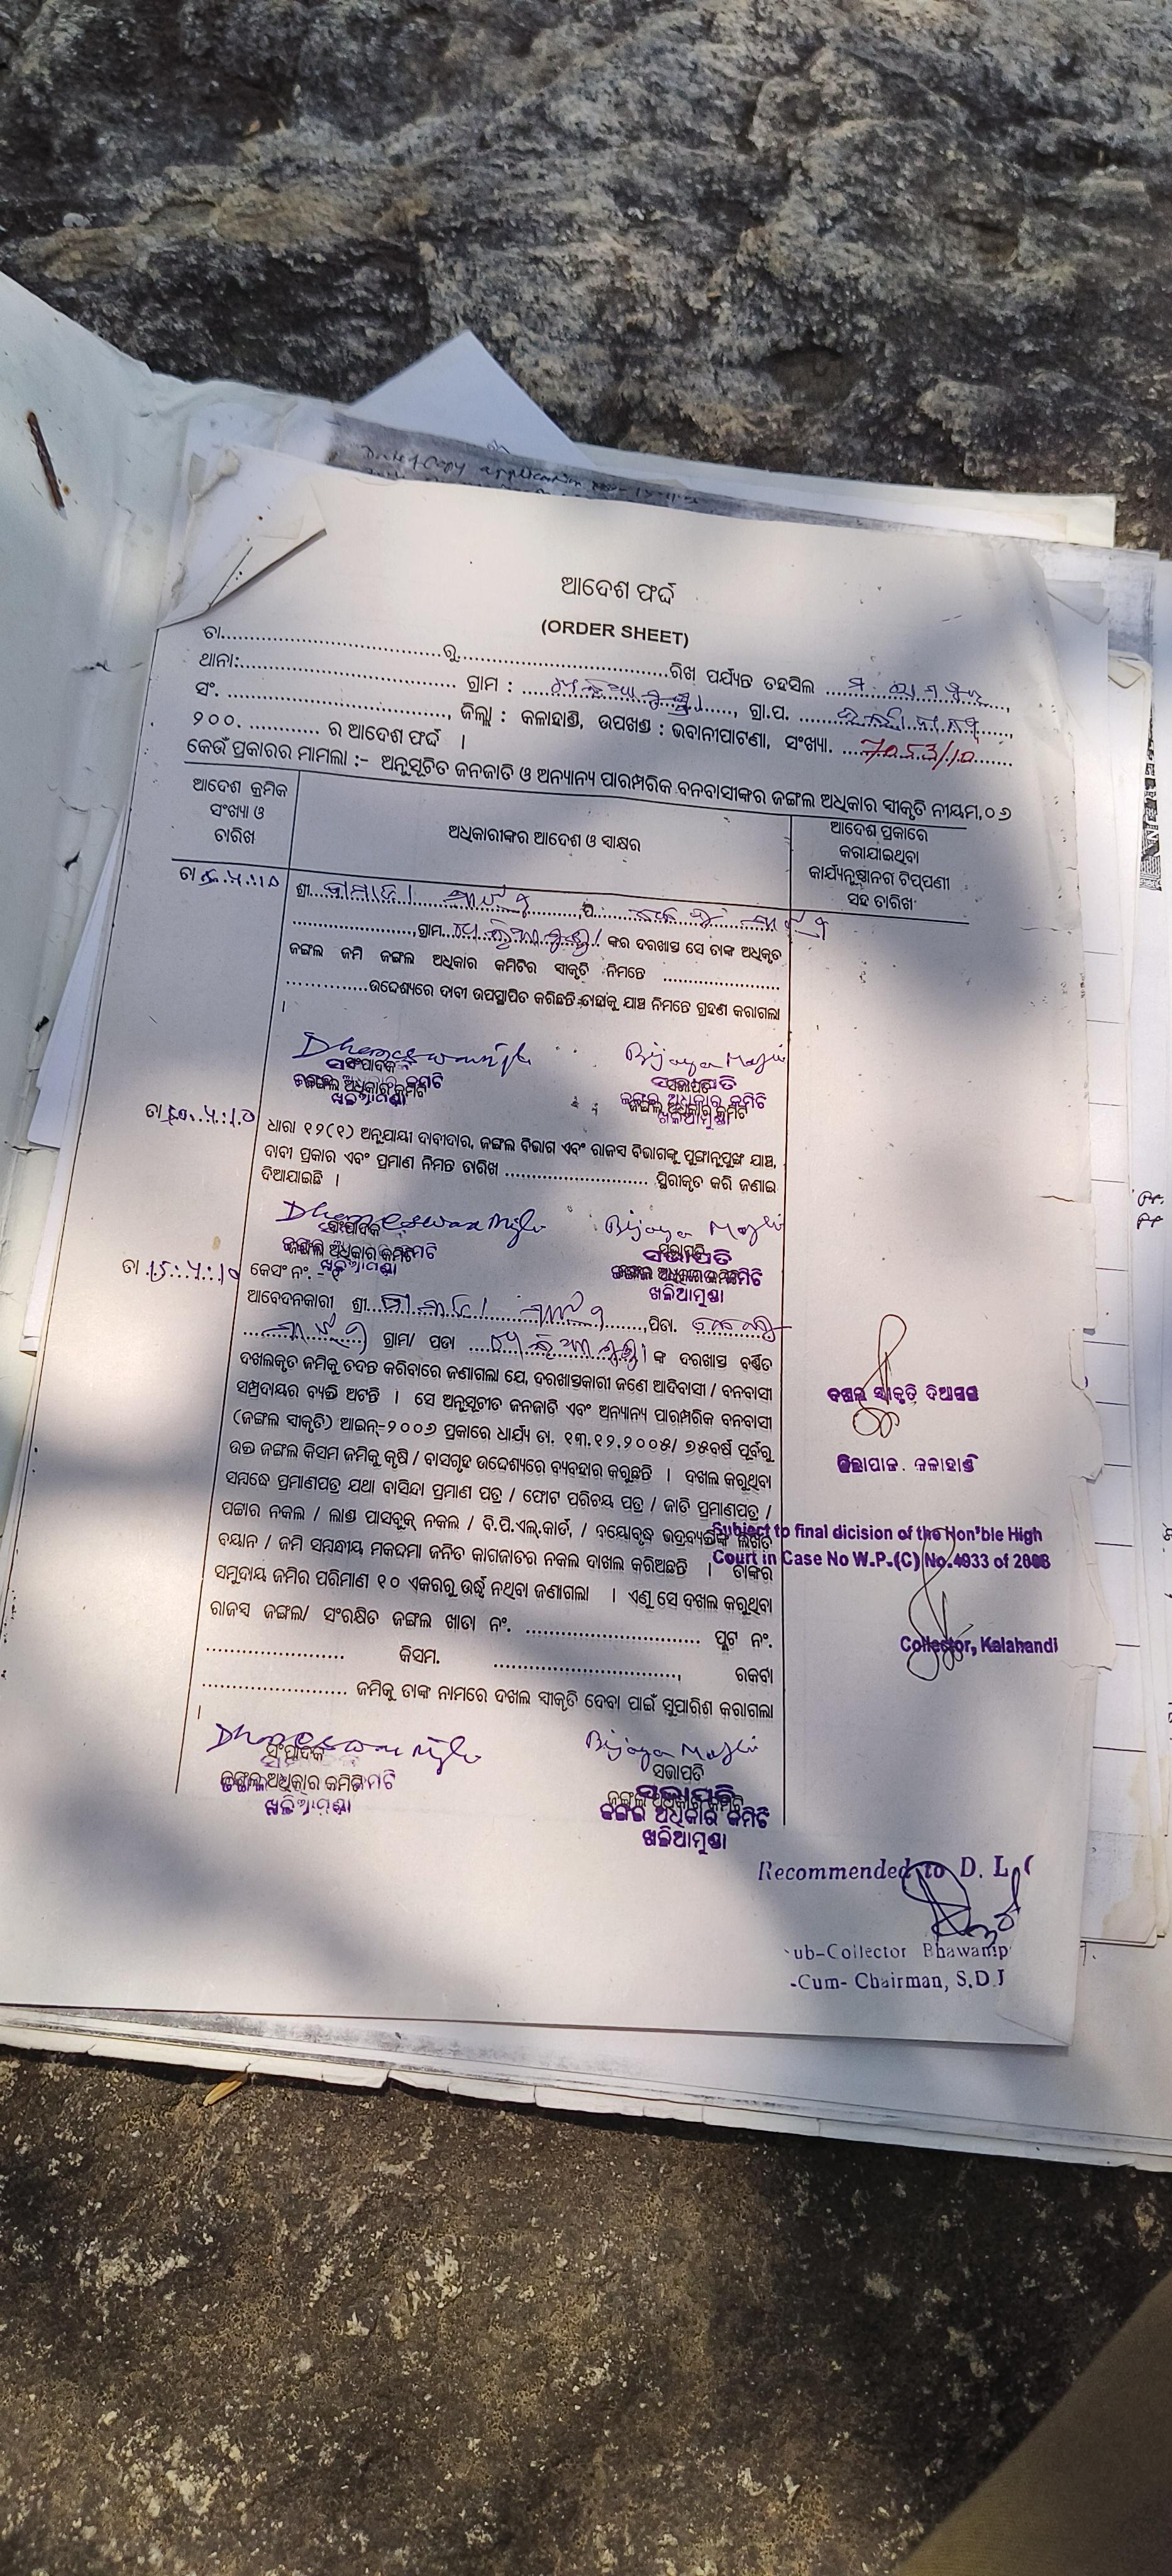 Date of Copy application
ଆଦେଶ ଫର୍ଦ୍ଦ
(ORDER SHEET)
ତା......................................ରୁ.....................................ରିଖ ପର୍ଯ୍ୟନ୍ତ ତହସିଲ
ଥାନା:...................................... ଗ୍ରାମ : ଖଳିଆମୁଣ୍ଡା, ଗ୍ରା.ପ.
ସଂ. ......................................, ଜିଲ୍ଲା : କଳାହାଣ୍ଡି, ଉପଖଣ୍ଡ : ଭବାନୀପାଟଣା, ସଂଖ୍ୟା. 7053/10
୨୦୦. ............. ର ଆଦେଶ ଫର୍ଦ୍ଦ ।
କେଉଁ ପ୍ରକାରର ମାମଲା :- ଅନୁସୂଚିତ ଜନଜାତି ଓ ଅନ୍ୟାନ୍ୟ ପାରମ୍ପରିକ ବନବାସୀଙ୍କର ଜଙ୍ଗଲ ଅଧିକାର ସ୍ୱୀକୃତି ନୀୟମ.୦୬
ଆଦେଶ କ୍ରମିକ
ସଂଖ୍ୟା ଓ
ତାରିଖ
ଅଧିକାରୀଙ୍କର ଆଦେଶ ଓ ସ୍ୱାକ୍ଷର
ଆଦେଶ ପ୍ରକାରେ
କରାଯାଇଥିବା
କାର୍ଯ୍ୟାନୁଷ୍ଠାନଗ ଟିପ୍ପଣୀ
ସହ ତାରିଖ
ତା
ଶ୍ରୀ.................................,ପି.
......................,ଗ୍ରାମ ଖଳିଆମୁଣ୍ଡା ଙ୍କର ଦରଖାସ୍ତ ସେ ତାଙ୍କ ଅଧିକୃତ
ଜଙ୍ଗଲ ଜମି ଜଙ୍ଗଲ ଅଧିକାର କମିଟିର ସ୍ୱୀକୃତି ନିମନ୍ତେ ......................
...............ଉଦ୍ଦେଶ୍ୟରେ ଦାବୀ ଉପସ୍ଥାପିତ କରିଛନ୍ତି ତାହାକୁ ଯାଞ୍ଚ ନିମନ୍ତେ ଗ୍ରହଣ କରାଗଲା
।
Bijaya Majhi
ସଂପାଦକ
ଜଙ୍ଗଲ ଅଧିକାର କମିଟି
ଖଳିଆମୁଣ୍ଡା
ସଭାପତି
ଜଙ୍ଗଲ ଅଧିକାର କମିଟି
ଖଳିଆମୁଣ୍ଡା
ତା
ଧାରା ୧୨(୧) ଅନୁଯାୟୀ ଦାବୀଦାର, ଜଙ୍ଗଲ ବିଭାଗ ଏବଂ ରାଜସ୍ୱ ବିଭାଗଙ୍କୁ ପୁଙ୍ଖାନୁପୁଙ୍ଖ ଯାଞ୍ଚ,
ଦାବୀ ପ୍ରକାର ଏବଂ ପ୍ରମାଣ ନିମନ୍ତ ତାରିଖ ........................... ସ୍ଥିରୀକୃତ କରି ଜଣାଇ
ଦିଆଯାଇଛି ।
Bijaya Majhi
ସଂପାଦକ
ଜଙ୍ଗଲ ଅଧିକାର କମିଟି
ଖଳିଆମୁଣ୍ଡା
ସଭାପତି
ଜଙ୍ଗଲ ଅଧିକାର କମିଟି
ଖଳିଆମୁଣ୍ଡା
ତା
କେସଂ ନଂ.
ଆବେଦନକାରୀ ଶ୍ରୀ.................................,ପିତା.
...................... ଗ୍ରାମ/ ପଡା ଖଳିଆମୁଣ୍ଡା ଙ୍କ ଦରଖାସ୍ତ ବର୍ଣ୍ଣିତ
ଦଖଲକୃତ ଜମିକୁ ତଦନ୍ତ କରିବାରେ ଜଣାଗଲା ଯେ, ଦରଖାସ୍ତକାରୀ ଜଣେ ଆଦିବାସୀ / ବନବାସୀ
ସମ୍ପ୍ରଦାୟର ବ୍ୟକ୍ତି ଅଟନ୍ତି । ସେ ଅନୁସୂଚୀତ ଜନଜାତି ଏବଂ ଅନ୍ୟାନ୍ୟ ପାରମ୍ପରିକ ବନବାସୀ
(ଜଙ୍ଗଲ ସ୍ୱୀକୃତି) ଆଇନ୍-୨୦୦୬ ପ୍ରକାରେ ଧାର୍ଯ୍ୟ ତା. ୧୩.୧୨.୨୦୦୫/ ୭୫ବର୍ଷ ପୂର୍ବରୁ
ଉକ୍ତ ଜଙ୍ଗଲ କିସମ ଜମିକୁ କୃଷି / ବାସଗୃହ ଉଦ୍ଦେଶ୍ୟରେ ବ୍ୟବହାର କରୁଛନ୍ତି । ଦଖଲ କରୁଥିବା
ସମ୍ବନ୍ଧେ ପ୍ରମାଣପତ୍ର ଯଥା ବାସିନ୍ଦା ପ୍ରମାଣ ପତ୍ର / ଫୋଟ ପରିଚୟ ପତ୍ର / ଜାତି ପ୍ରମାଣପତ୍ର /
ପଟ୍ଟାର ନକଲ / ଲାଣ୍ଡ ପାସବୁକ୍ ନକଲ / ବି.ପି.ଏଲ୍.କାର୍ଡ, / ବୟୋବୃଦ୍ଧ ଭଦ୍ରବ୍ୟକ୍ତିଙ୍କ ଲିଖିତ
ବୟାନ / ଜମି ସମ୍ବନ୍ଧୀୟ ମକଦ୍ଦମା ଜନିତ କାଗଜାତର ନକଲ ଦାଖଲ କରିଅଛନ୍ତି । ତାଙ୍କର
ସମୁଦାୟ ଜମିର ପରିମାଣ ୧୦ ଏକରରୁ ଉର୍ଦ୍ଧ୍ୱ ନଥିବା ଜଣାଗଲା । ଏଣୁ ସେ ଦଖଲ କରୁଥିବା
ରାଜସ୍ୱ ଜଙ୍ଗଲ/ ସଂରକ୍ଷିତ ଜଙ୍ଗଲ ଖାତା ନଂ. ................................ ପ୍ଲଟ ନଂ.
......................... କିସମ. ................................, ରକବା
......................... ଜମିକୁ ତାଙ୍କ ନାମରେ ଦଖଲ ସ୍ୱୀକୃତି ଦେବା ପାଇଁ ସୁପାରିଶ କରାଗଲା
।
Bijaya Majhi
ସଂପାଦକ
ଜଙ୍ଗଲ ଅଧିକାର କମିଟି
ଖଳିଆମୁଣ୍ଡା
ସଭାପତି
ଜଙ୍ଗଲ ଅଧିକାର କମିଟି
ଖଳିଆମୁଣ୍ଡା
ଦଖଲ ସ୍ୱୀକୃତି ଦିଆଗଲା
ଜିଲ୍ଲାପାଳ. କଳାହାଣ୍ଡି
Subject to final dicision of the Hon'ble High
Court in Case No W.P.(C) No.4933 of 2008
Collector, Kalahandi
Recommended to D. L
ub-Collector Bhawanip
-Cum- Chairman, S.D